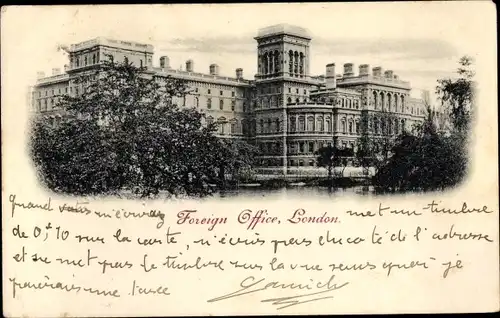 Grand vas n'écrivez
Foreign Office, London.
met un timbre
de 0,fr10 sur la carte, n'écris pas du coté de l'adresse
et ne met pas de timbre sur la vue sans quoi je
paierais une taxe